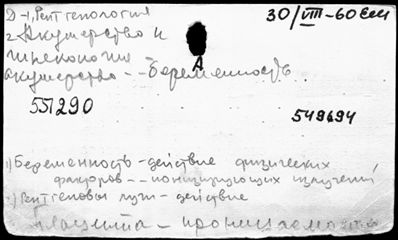 Д-1, Рентгенология 30/VIII-60
2 Акушерство и
гинекология
акушерство -- Беременность
А
551290 549694
1) Беременность - действие физических
факторов -- ионизирующих излучений
2) Рентгеновы лучи - действие
Плацента - проницаемость